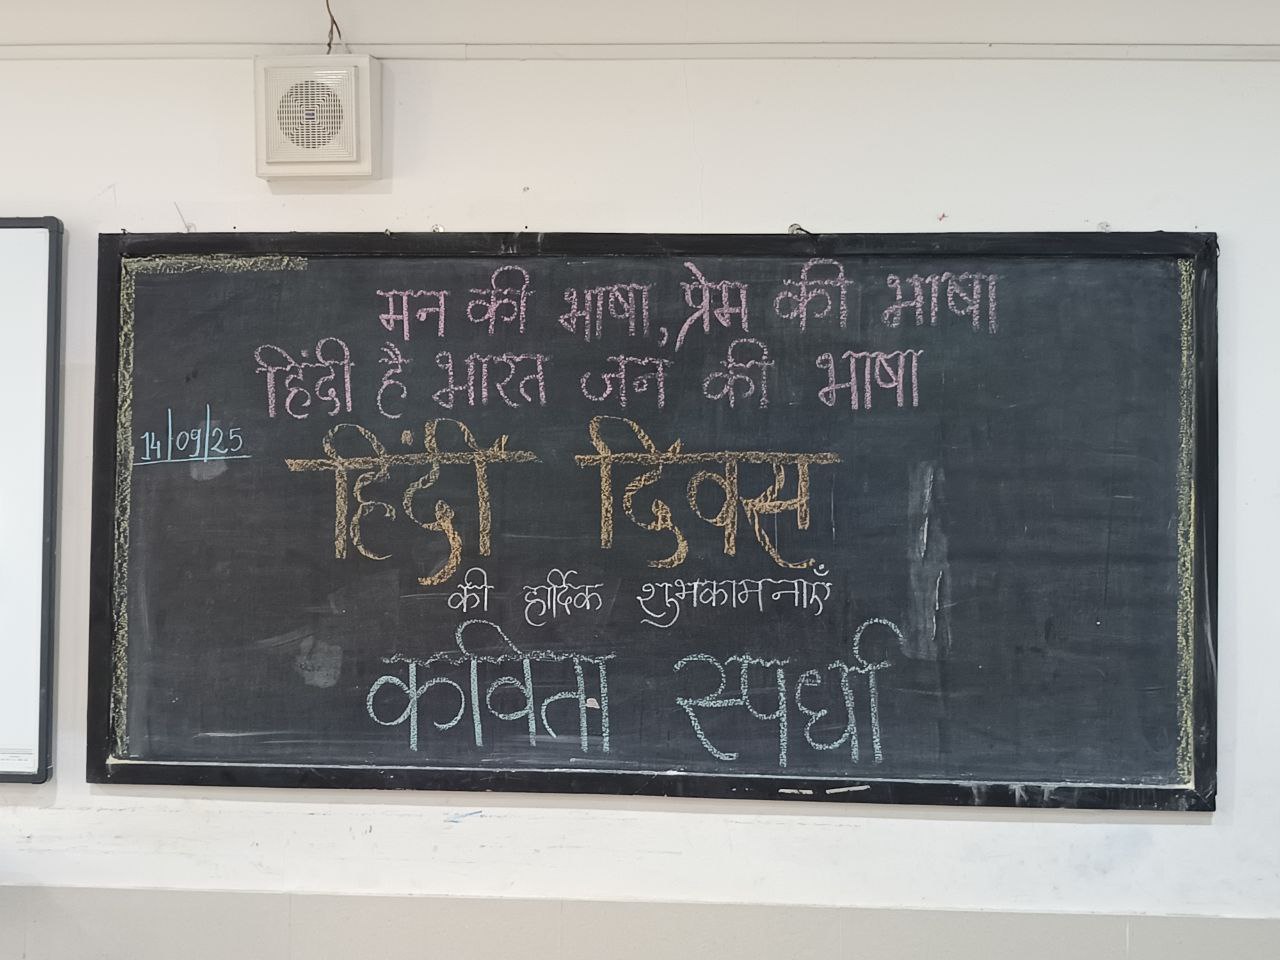 मन की भाषा, प्रेम की भाषा
हिंदी है भारत जन की भाषा
14/09/25
हिंदी दिवस
की हार्दिक शुभकामनाएँ
कविता स्पर्धा